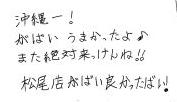 沖縄一！
がばい うまかったよ♪
また絶対来っけんね!!
松尾店がばい良かったばい!